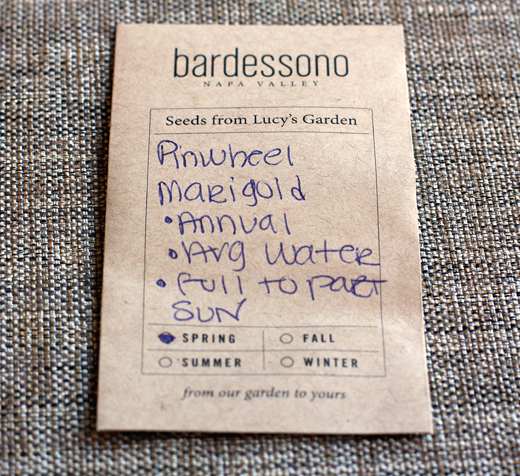 bardessono
NAPA VALLEY
Seeds from Lucy's Garden
Pinwheel
Marigold
• Annual
• Avg Water
• Full to part
Sun
SPRING
FALL
SUMMER
WINTER
from our garden to yours